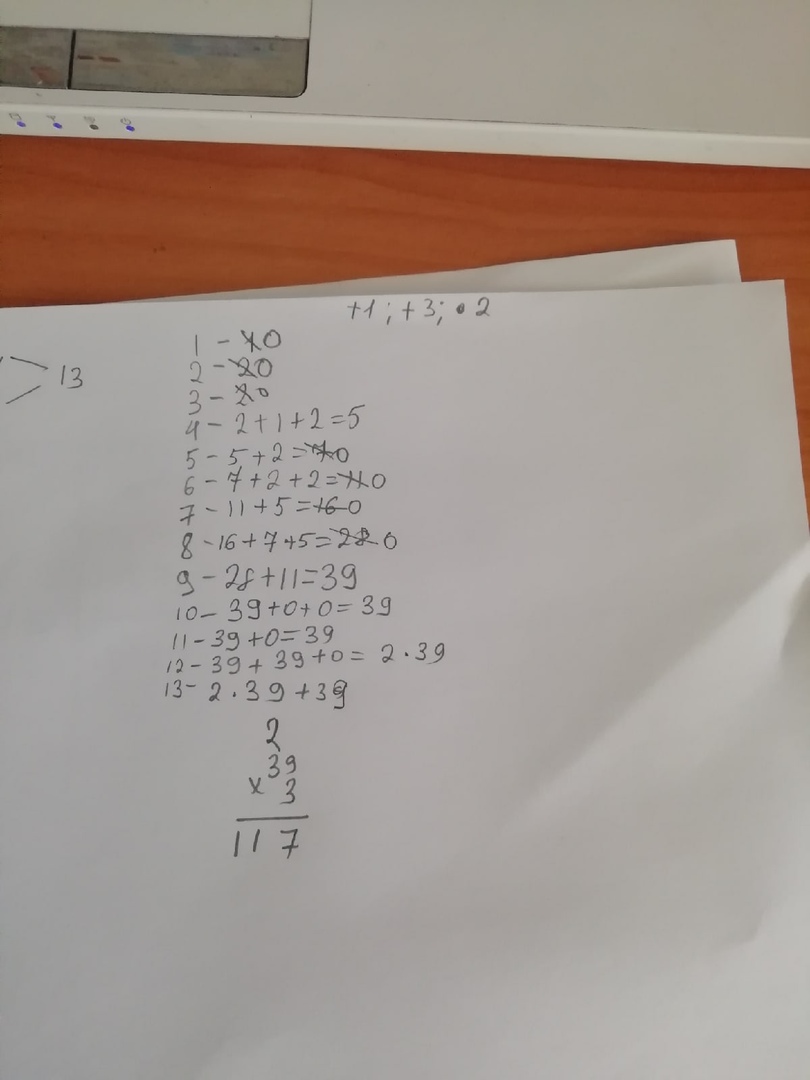 +1; +3; • 2
13
1 - 10
2 - 20
3 - 20
4 - 2+1+2=5
5 - 5+2=70
6 - 7+2+2=110
7 - 11+5=160
8 - 16+7+5=280
9 - 28+11=39
10 - 39+0+0=39
11 - 39+0=39
12 - 39+39+0= 2·39
13 - 2·39+39
2
39
x 3
117